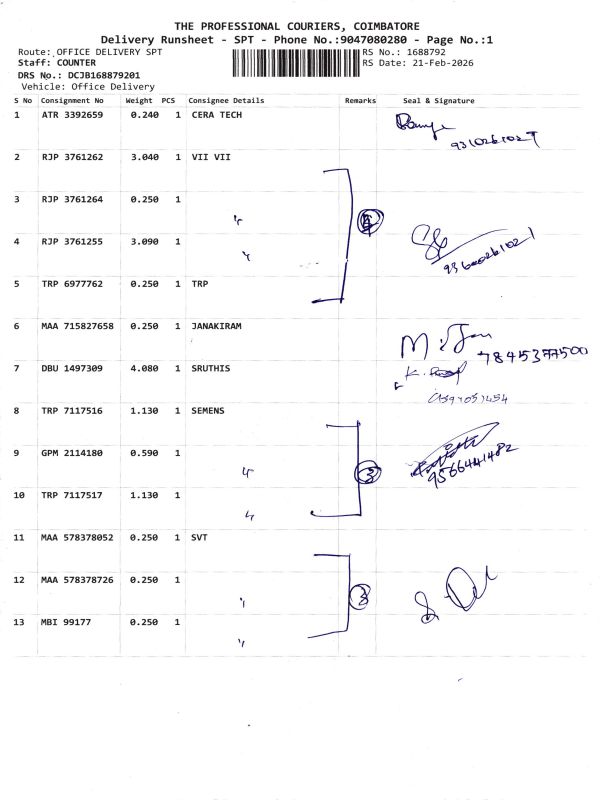 THE PROFESSIONAL COURIERS, COIMBATORE
Delivery Runsheet - SPT - Phone No.:9047080280 - Page No.:1
Route: OFFICE DELIVERY SPT
RS No.: 1688792
Staff: COUNTER
RS Date: 21-Feb-2026
DRS No.: DCJB168879201
Vehicle: Office Delivery
S No Consignment No Weight PCS Consignee Details Remarks Seal & Signature
1 ATR 3392659 0.240 1 CERA TECH
2 RJP 3761262 3.040 1 VII VII
3 RJP 3761264 0.250 1
4 RJP 3761255 3.090 1
5 TRP 6977762 0.250 1 TRP
6 MAA 715827658 0.250 1 JANAKIRAM
7845377500
7 DBU 1497309 4.080 1 SRUTHIS
8 TRP 7117516 1.130 1 SEMENS
9 GPM 2114180 0.590 1
3
9566441482
10 TRP 7117517 1.130 1
11 MAA 578378052 0.250 1 SVT
12 MAA 578378726 0.250 1
3
13 MBI 99177 0.250 1